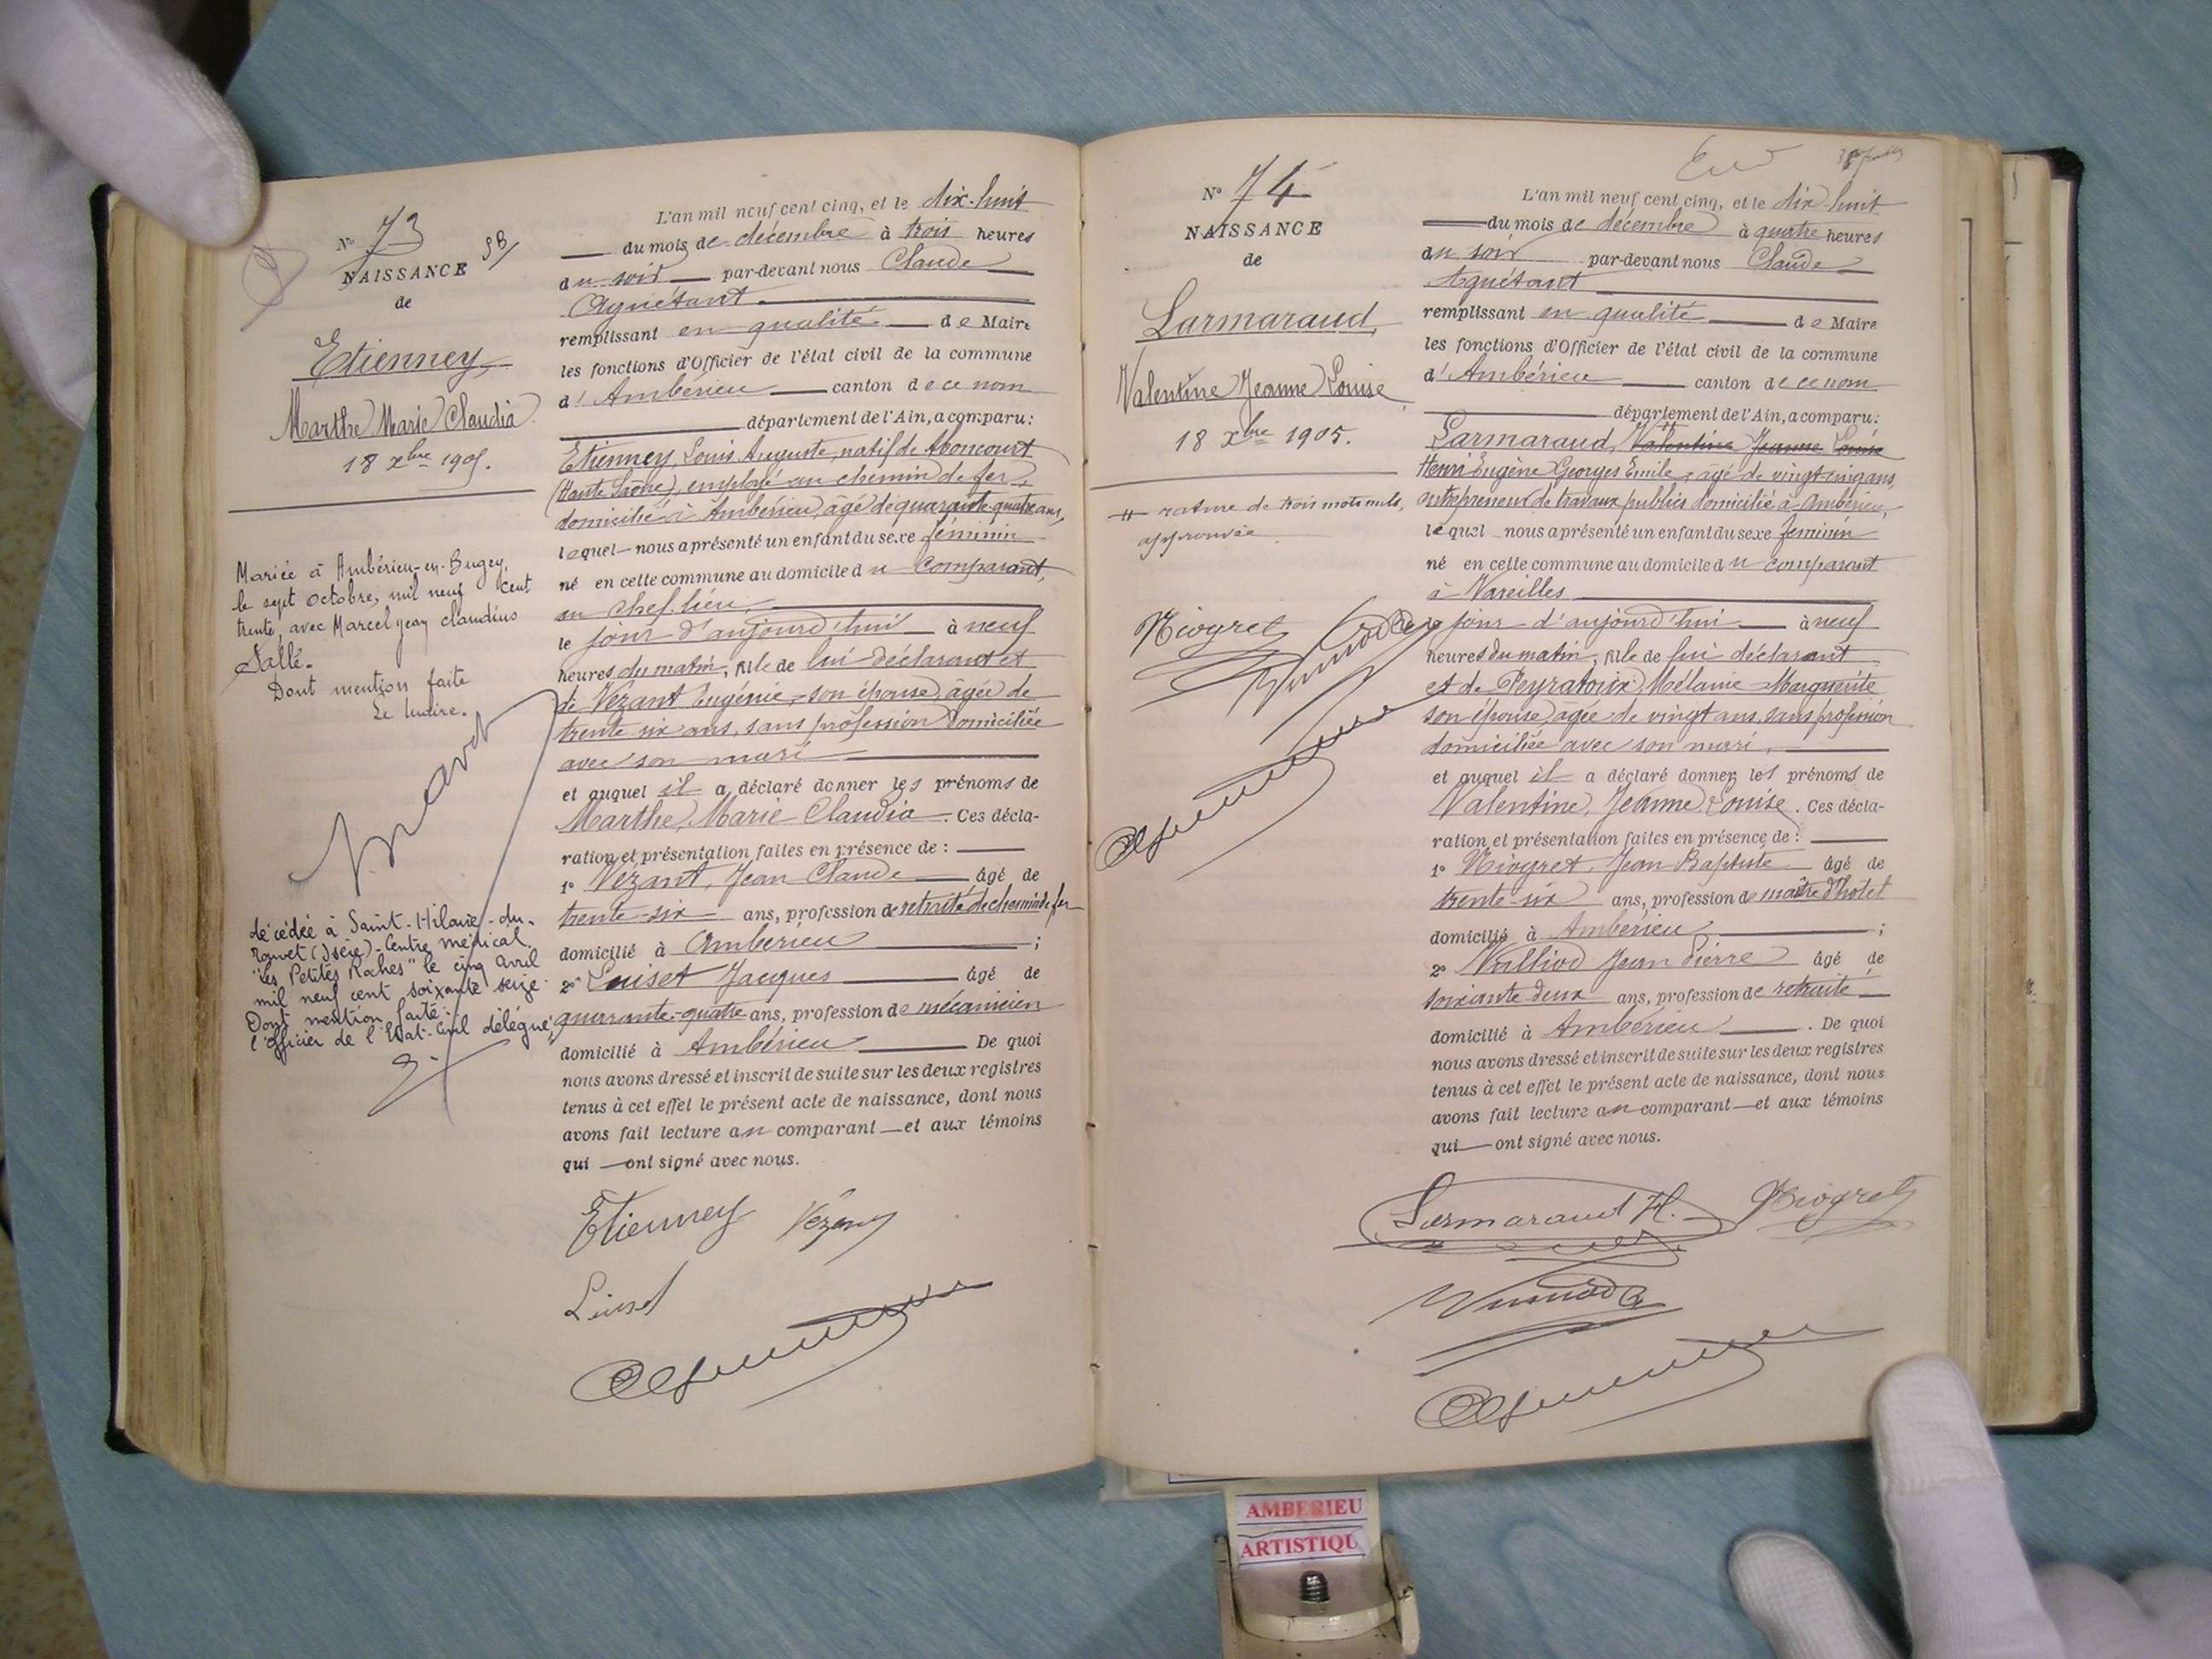 N° 73
NAISSANCE
de
Etienney
Marthe Marie Claudia
18 xbre 1905.
Mariée à Ambérieu-en-Bugey,
le sept octobre, mil neuf cent
trente, avec Marcel Jean Claudius
Sallé.
Dont mention faite
Le Maire.
décédée à Saint-Hilaire-du-
Touvet (Isère)-Centre médical
"Les Petites Roches" le cinq avril
mil neuf cent soixante seize.
Dont mention faite:
l'Officier de l'Etat-Civil délégué,
L'an mil neuf cent cinq, et le dix-huit
du mois de décembre à trois heures
du soir par-devant nous Claude
Aguétant
remplissant en qualité de Maire
les fonctions d'Officier de l'état civil de la commune
d'Ambérieu canton de ce nom
département de l'Ain, a comparu:
Etienney, Louis Auguste, natif de Aboncourt
(Haute Saône), employé au chemin de fer,
domicilié à Ambérieu, âgé de quarante-quatre ans,
lequel nous a présenté un enfant du sexe féminin
né en cette commune au domicile du comparant,
au chef-lieu,
le jour d'aujourd'hui à neuf
heures du matin, fille de lui déclarant et
de Vezant Eugénie, son épouse, âgée de
trente six ans, sans profession domiciliée
avec son mari
et auquel il a déclaré donner les prénoms de
Marthe, Marie Claudia. Ces décla-
ration et présentation faites en présence de:
1° Vezant, Jean Claude âgé de
trente-six ans, profession de retraité de chemin de fer
domicilié à Ambérieu;
2° Luiset Jacques âgé de
quarante-quatre ans, profession de mécanicien
domicilié à Ambérieu De quoi
nous avons dressé et inscrit de suite sur les deux registres
tenus à cet effet le présent acte de naissance, dont nous
avons fait lecture au comparant et aux témoins
qui ont signé avec nous.
Etienney Vezant
Luiset
N° 74
NAISSANCE
de
Larmaraud,
Valentine Jeanne Louise
18 xbre 1905.
rature de trois mots nuls,
approuvée
Niogret
L'an mil neuf cent cinq, et le dix-huit
du mois de décembre à quatre heures
du soir par-devant nous Claude
Aguétant
remplissant en qualité de Maire
les fonctions d'Officier de l'état civil de la commune
d'Ambérieu canton de ce nom
département de l'Ain, a comparu:
Larmaraud, Valentine Jeanne Louise
Henri Eugène Georges Emile, âgé de vingt-cinq ans,
entrepreneur de travaux publics domicilié à Ambérieu,
lequel nous a présenté un enfant du sexe féminin
né en cette commune au domicile du comparant
à Vareilles
jour d'aujourd'hui à neuf
heures du matin, fille de lui déclarant
et de Peyratoux, Mélanie Marguerite
son épouse, âgée de vingt ans, sans profession
domiciliée avec son mari,
et auquel il a déclaré donner les prénoms de
Valentine, Jeanne Louise. Ces décla-
ration et présentation faites en présence de:
1° Niogret, Jean Baptiste âgé de
trente-six ans, profession de maître d'hôtel
domicilié à Ambérieu;
2° Vulliod Jean Pierre âgé de
soixante deux ans, profession de retraité
domicilié à Ambérieu. De quoi
nous avons dressé et inscrit de suite sur les deux registres
tenus à cet effet le présent acte de naissance, dont nous
avons fait lecture au comparant et aux témoins
qui ont signé avec nous.
Larmaraud H. Niogret
AMBERIEU
ARTISTIQU